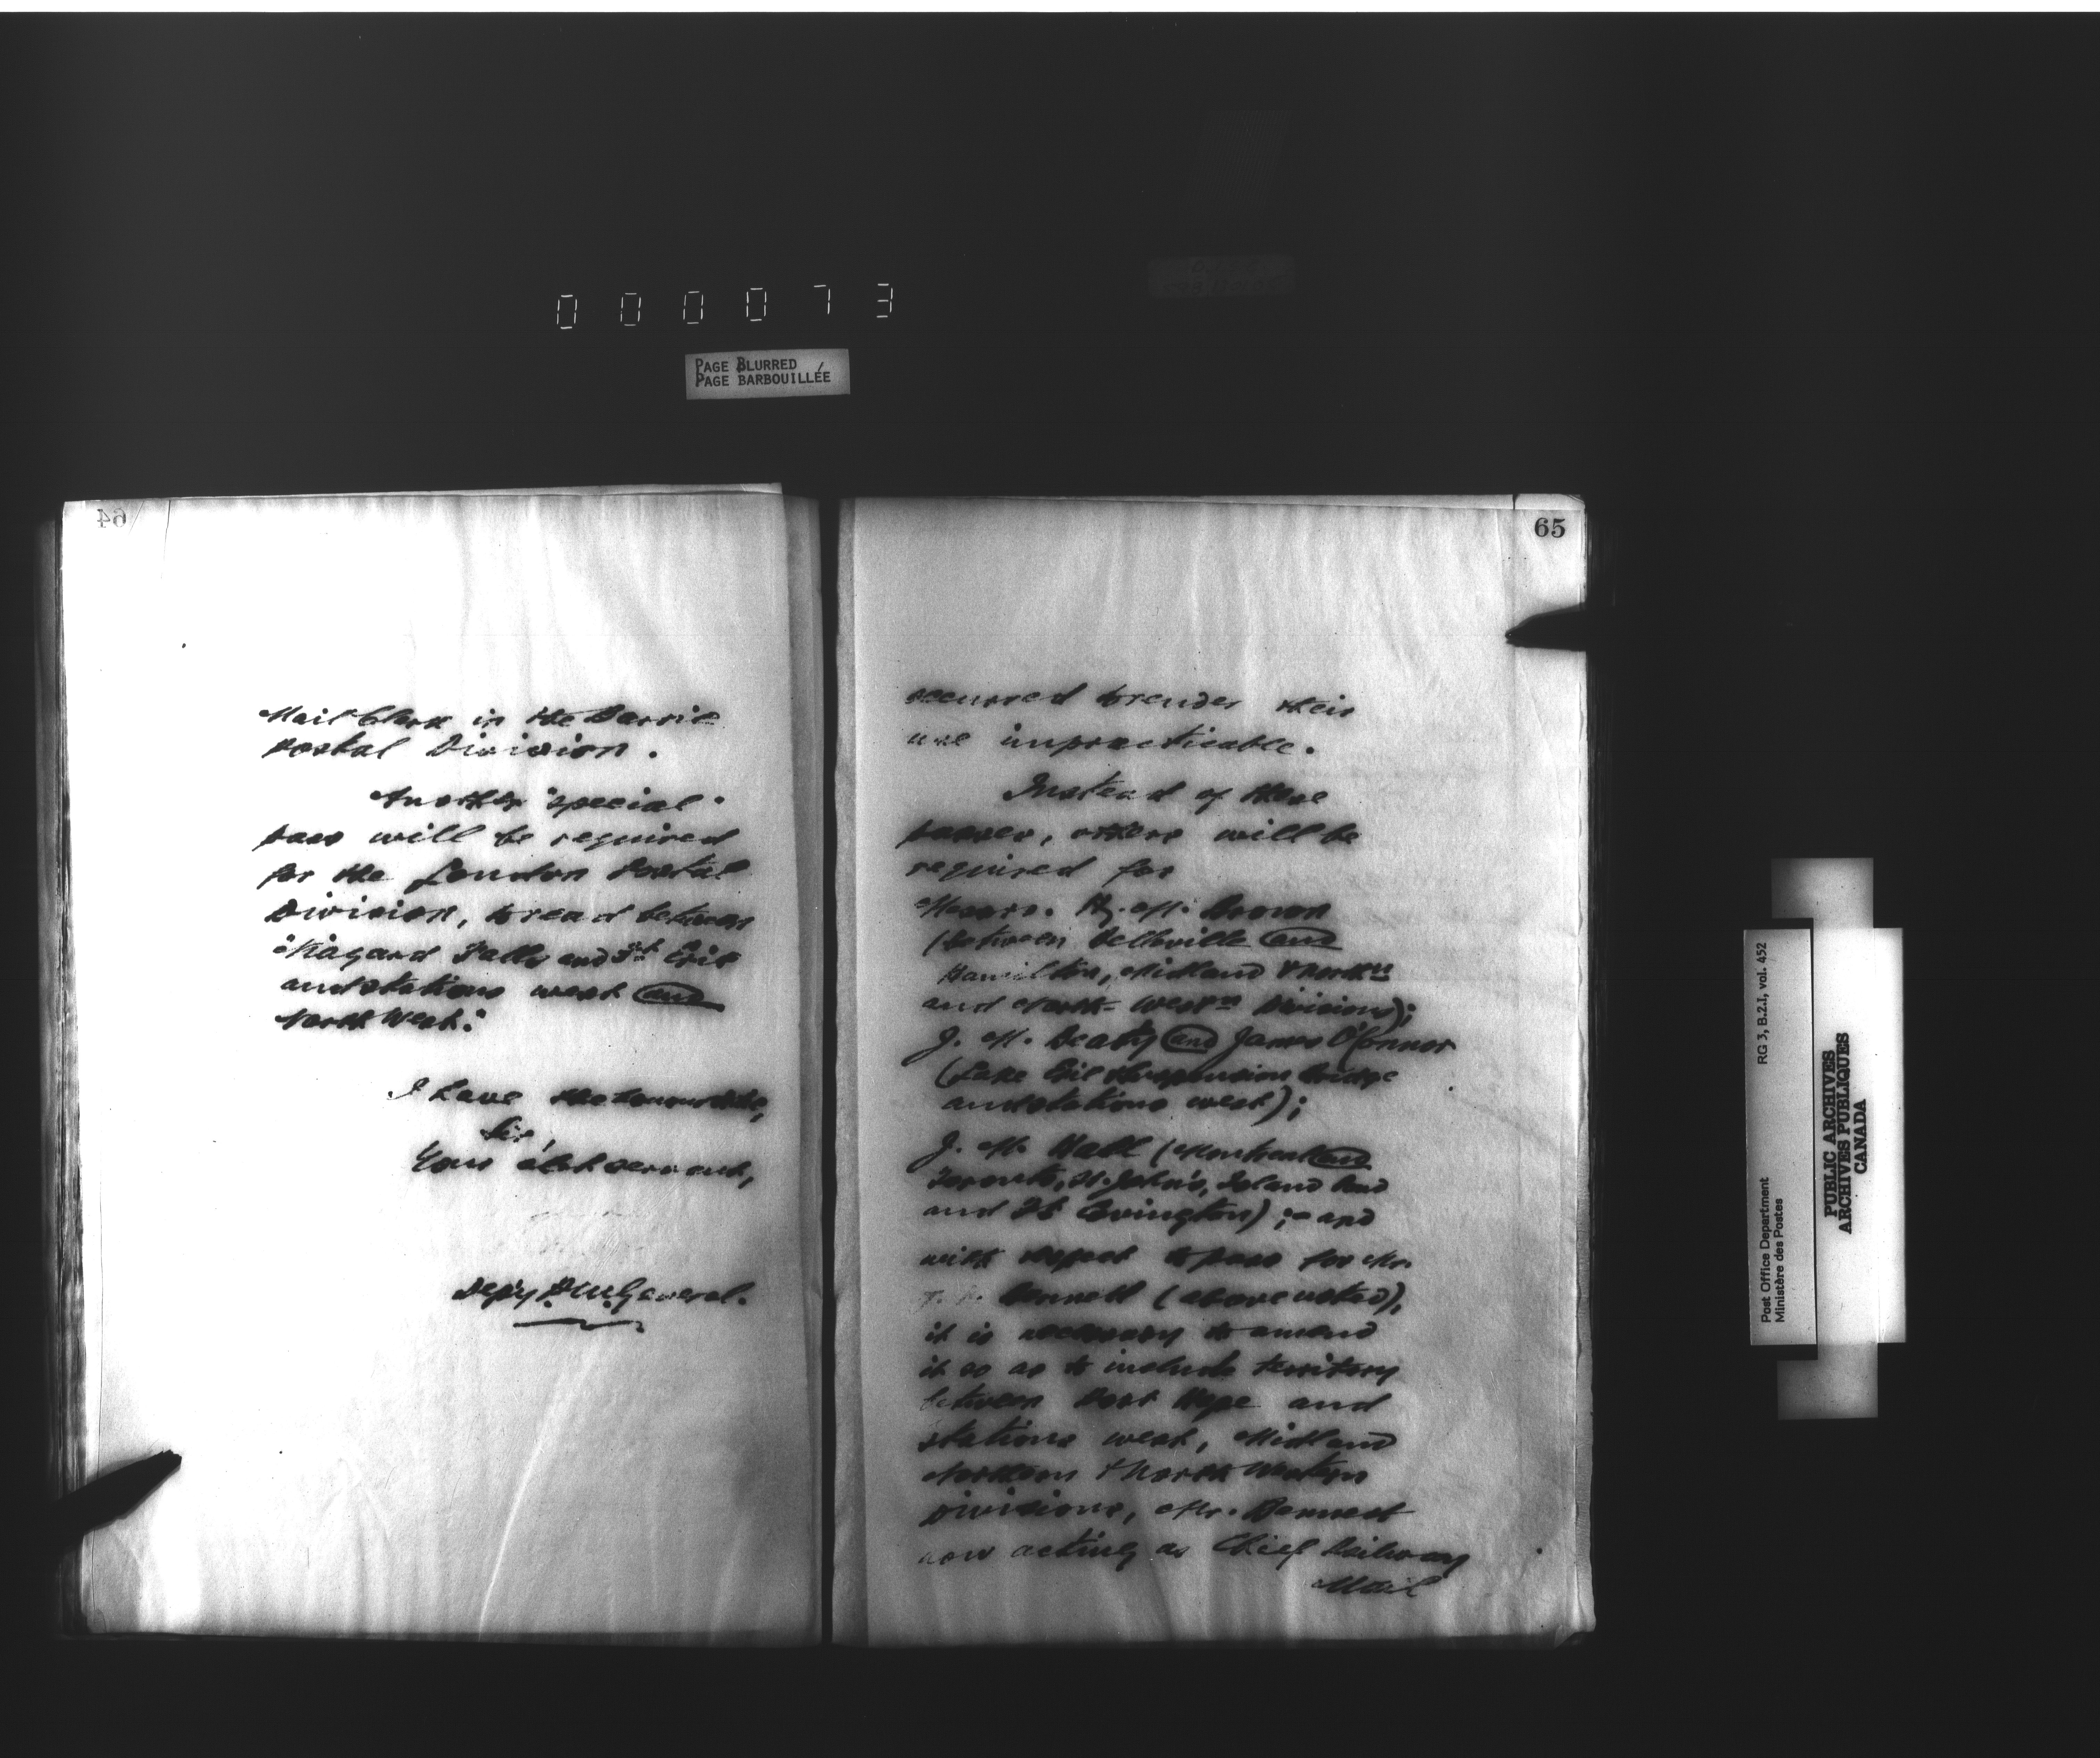 000073
PAGE BLURRED
PAGE BARBOUILLÉE
64
Mail Clerk in the Barrie
Postal Division.
Another "special"
pass will be required
for the London Postal
Division, to read between
"Niagara Falls and Ft Erie
and stations west and
North West."
I have the honour to be,
Sir,
Your obdt servant,
Depy P.M. General.
65
occurred to render their
use impracticable.
Instead of these
passes, others will be
required for
Messrs. Hy. M. Brown
(between Belleville and
Hamilton, Midland & North'n
and North-West'n Divisions);
J. M. Beaty and James O'Connor
(Lake Erie & Suspension Bridge
and stations west);
J. M. Hall (Montreal and
Toronto, St. John's, Island Pond
and Ft Covington);- and
with respect to pass for Mr.
Bennett (above noted),
it is necessary to amend
it so as to include territory
between Port Hope and
stations west, Midland
Northern & North Western
Divisions, Mr. Bennett
now acting as Chief Railway
Mail
Post Office Department
Ministère des Postes
RG 3, B.2.I, vol. 452
PUBLIC ARCHIVES
ARCHIVES PUBLIQUES
CANADA